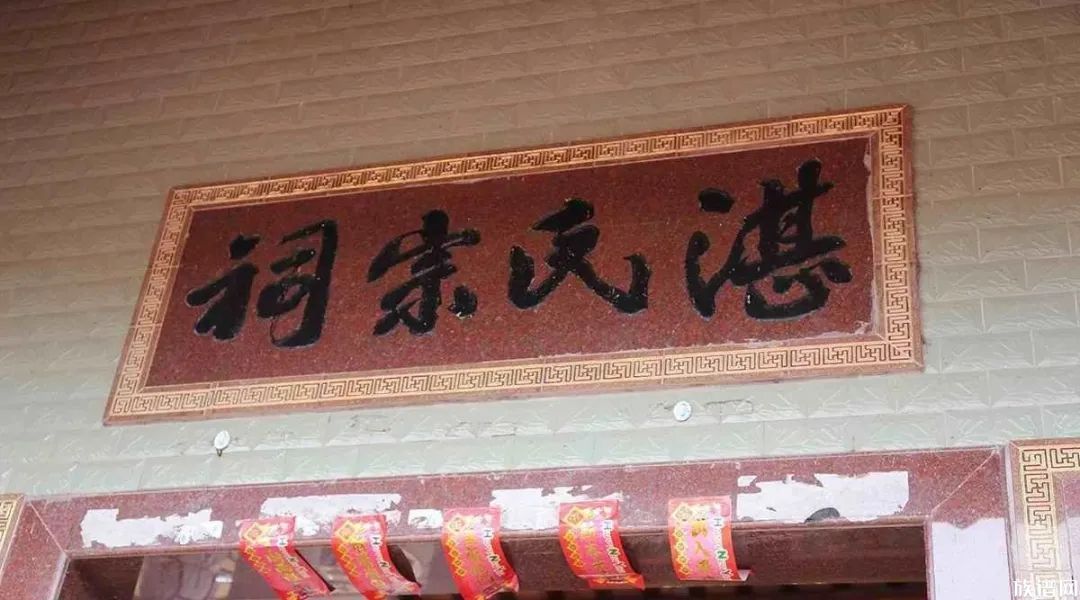 湛氏宗祠
族谱网